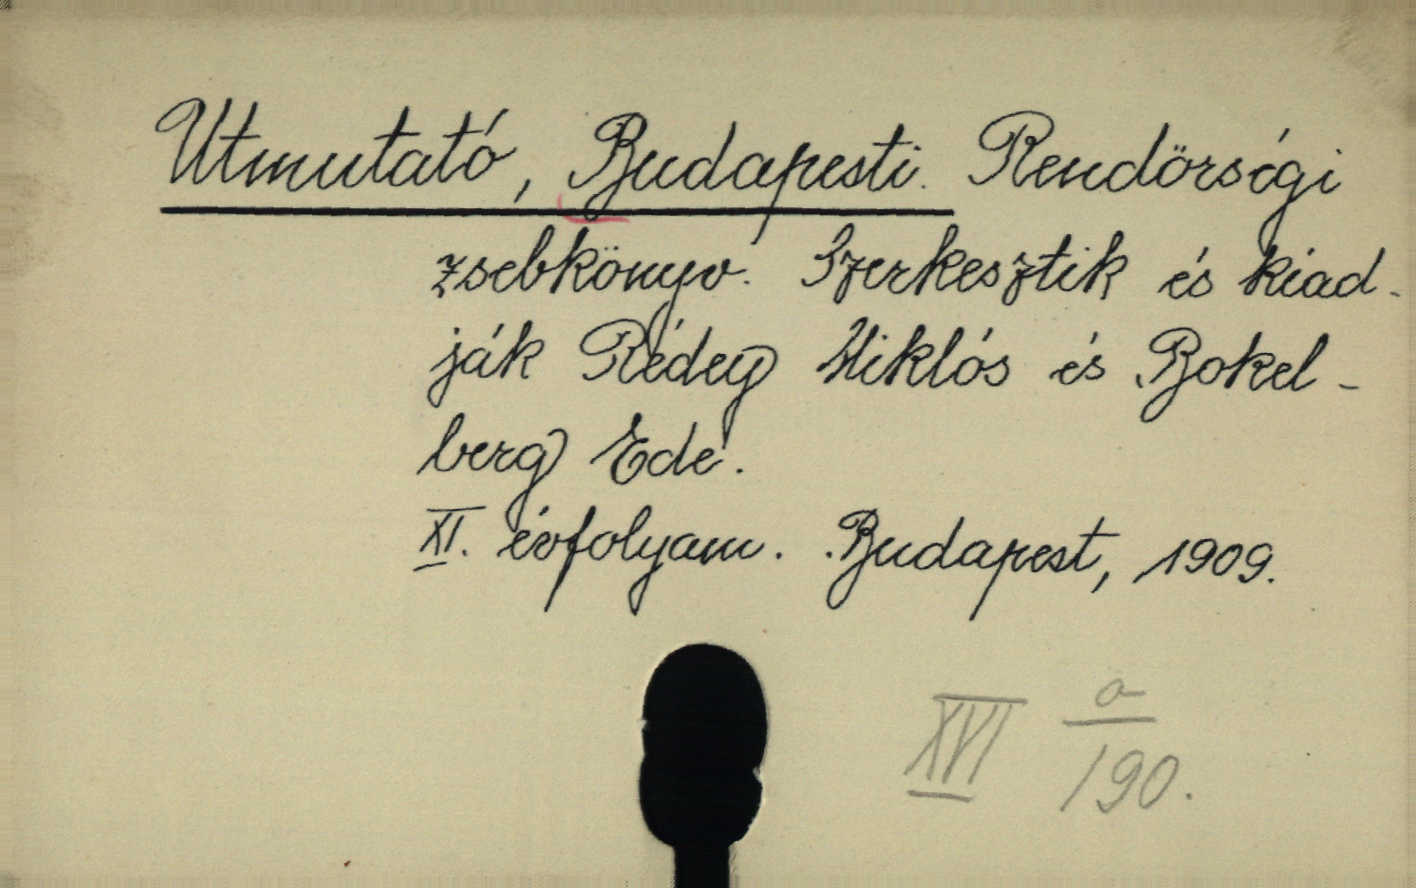 Utmutató, Budapesti. Rendörségi
zsebkönyv. Szerkesztik és kiad-
ják Rédey Miklós és Bokel-
berg Ede.
XI. évfolyam. Budapest, 1909.
XVI a/190.